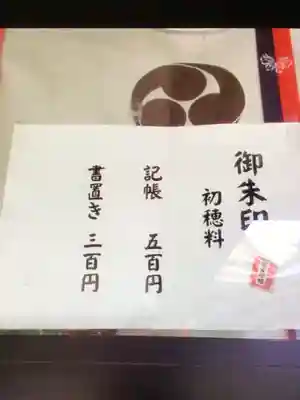 御朱印
初穂料
記帳 五百円
書置き 三百円